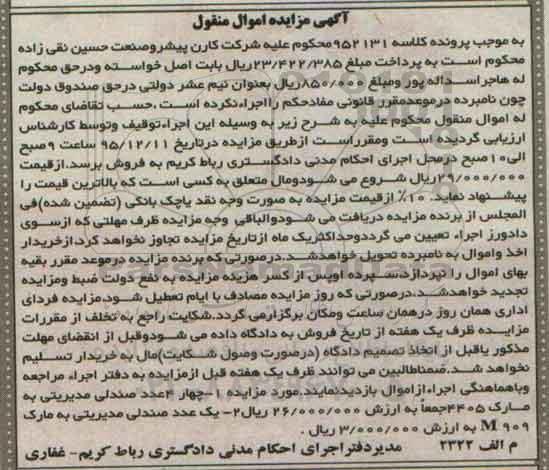 آگهی مزایده اموال منقول
به موجب پرونده کلاسه ۹۵۲۱۳۱محکوم علیه شرکت کارن پیشروصنعت حسین نقی زاده
محکوم است به پرداخت مبلغ ۲۳/۴۲۲/۳۸۵ریال بابت اصل خواسته ودرحق محکوم
له هاجراسداله پور ومبلغ ۸۵۰/۰۰۰ریال بعنوان نیم عشر دولتی درحق صندوق دولت
چون نامبرده درموعدمقرر قانونی مفادحکم رااجراءنکرده است .حسب تقاضای محکوم
له اموال منقول محکوم علیه به شرح زیر به وسیله این اجراءتوقیف وتوسط کارشناس
ارزیابی گردیده است ومقرراست ازطریق مزایده درتاریخ ۹۵/۱۲/۱۱ ساعت ۹صبح
الی۱۰صبح درمحل اجرای احکام مدنی دادگستری رباط کریم به فروش برسد.ازقیمت
۲۹/۰۰۰/۰۰۰ریال شروع می شودومال متعلق به کسی است که بالاترین قیمت را
پیشنهاد نماید. ۱۰٪ ازقیمت مزایده به صورت وجه نقد یاچک بانکی (تضمین شده)فی
المجلس از برنده مزایده دریافت می شودوالباقی وجه مزایده ظرف مهلتی که ازسوی
دادورز اجراء تعیین می گرددوحداکثریک ماه ازتاریخ مزایده تجاوز نخواهد کرد.ازخریدار
اخذ واموال به نامبرده تحویل خواهدشد.درصورتی که برنده مزایده درموعد مقرر بقیه
بهای اموال را نپردازد،سپرده اوپس از کسر هزینه مزایده به نفع دولت ضبط ومزایده
تجدید خواهدشد.درصورتی که روز مزایده مصادف با ایام تعطیل شود،مزایده فردای
اداری همان روز درهمان ساعت ومکان برگزارمی گردد.شکایت راجع به تخلف از مقررات
مزایده ظرف یک هفته از تاریخ فروش به دادگاه داده می شودوقبل از انقضای مهلت
مذکور یاقبل از اتخاذ تصمیم دادگاه (درصورت وصول شکایت)مال به خریدار تسلیم
نخواهد شد.ضمناطالبین می توانند ظرف یک هفته قبل ازمزایده به دفتر اجراء مراجعه
وباهماهنگی اجراءازاموال بازدیدنمایند.مورد مزایده ۱- چهار ۴عدد صندلی مدیریتی به
مارک ۴۴۰۵جمعاً به ارزش ۲۶/۰۰۰/۰۰۰ ریال۲- یک عدد صندلی مدیریتی به مارک
M ۹۰۹ به ارزش ۳/۰۰۰/۰۰۰ ریال .
م الف ۲۳۲۲ مدیردفتراجرای احکام مدنی دادگستری رباط کریم- غفاری